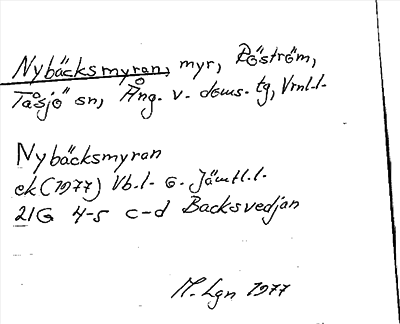 Nybäcksmyran, myr, Röström,
Tåsjö sn, Ång. v. doms. tg, Vrml.l.
Nybäcksmyran
ek (1977) Vb.l. o. Jämtl.l.
21G 4-5 c-d Backsvedjan
M. Lgn 1977